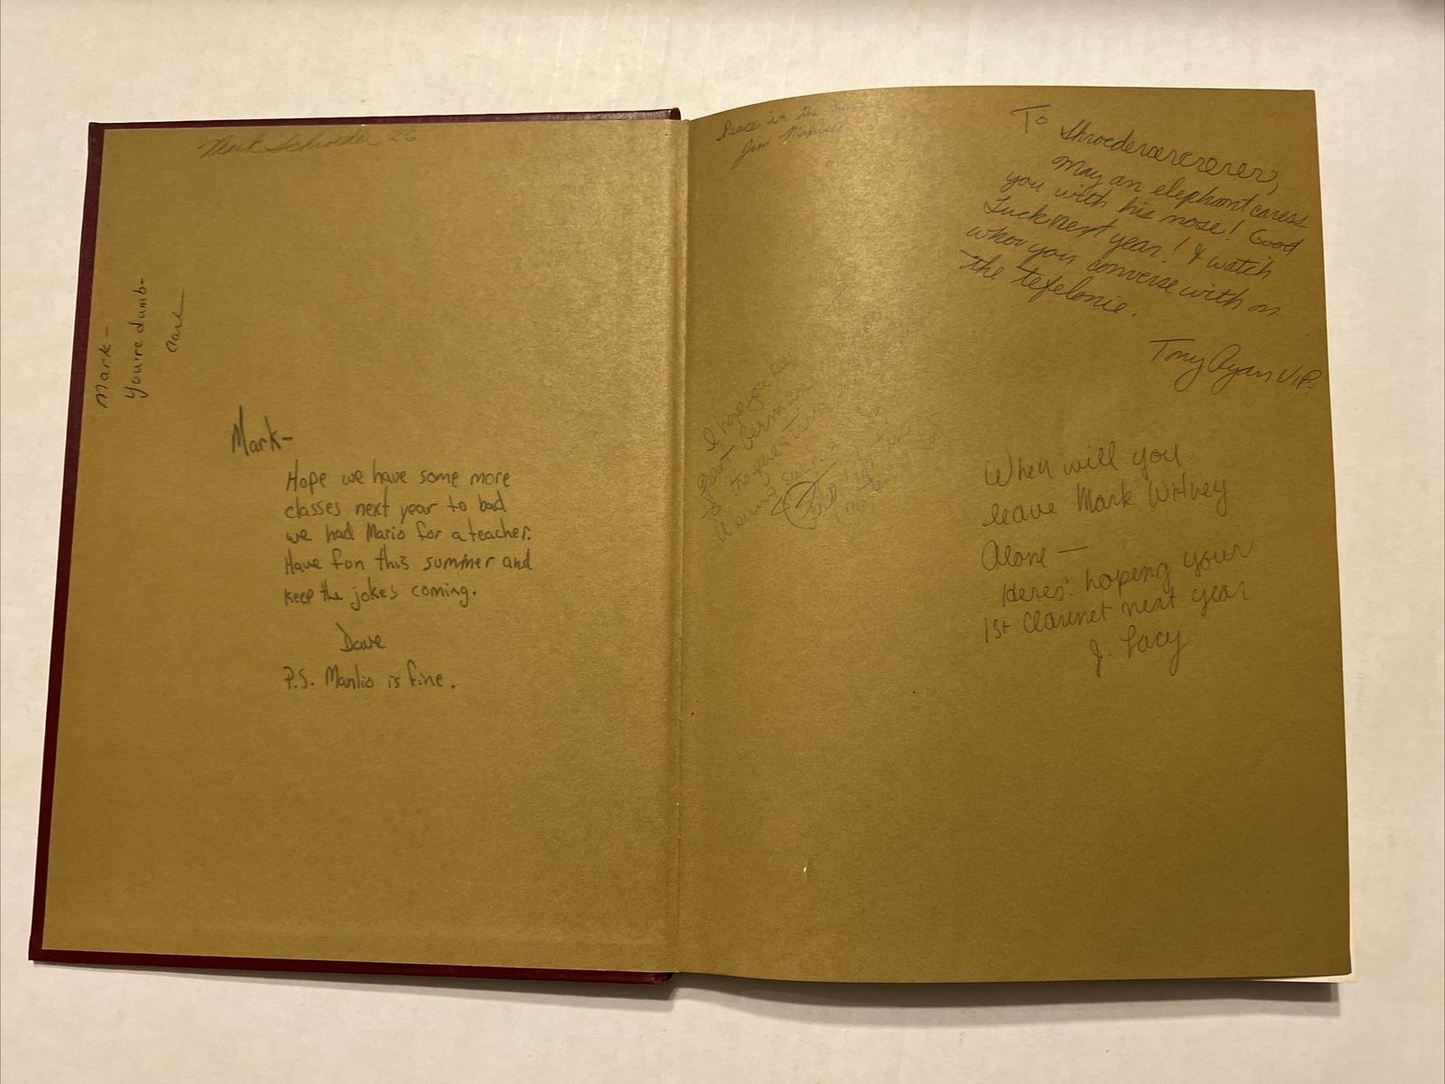 Mark Schroeder
Mark-
You're dumb-
Carl
Mark-
Hope we have some more
classes next year to bad
we had Mario for a teacher.
Have fun this summer and
keep the jokes coming.
Dave
P.S. Manlio is fine.
Peace in the
Jim
To Shroederererererer,
May an elephant caress
you with his nose! Good
Luck next year! & watch
who you converse with on
the tefelonie.
Tony Ryan V.P.
I hope you
great German
to the
When will you
leave Mark Witney
Alone—
Heres' hoping your
1st Clarinet next year
J. Lacy